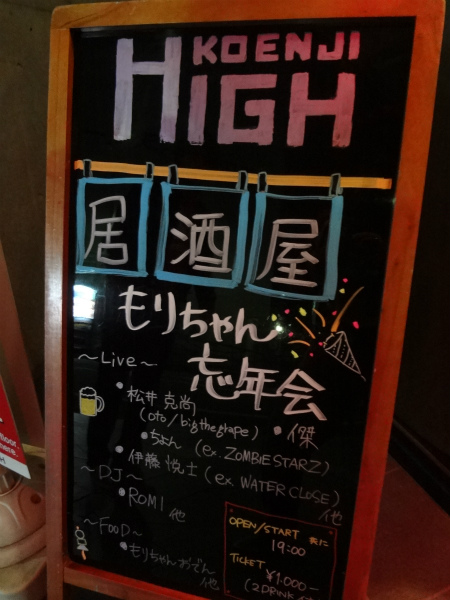 KOENJI
HIGH
居酒屋
もりちゃん
忘年会
～Live～
・松井 克尚
(oto/bigthegrape) ・傑
・ちょん (ex. ZOMBIE STARZ)
・伊藤 悦士 (ex. WATER CLOSE)
他
～DJ～
・ROMI 他
～FOOD～
・もりちゃんおでん
他
OPEN/START 共に
19:00
TICKET
¥1,000-
(2DRINK
floor.